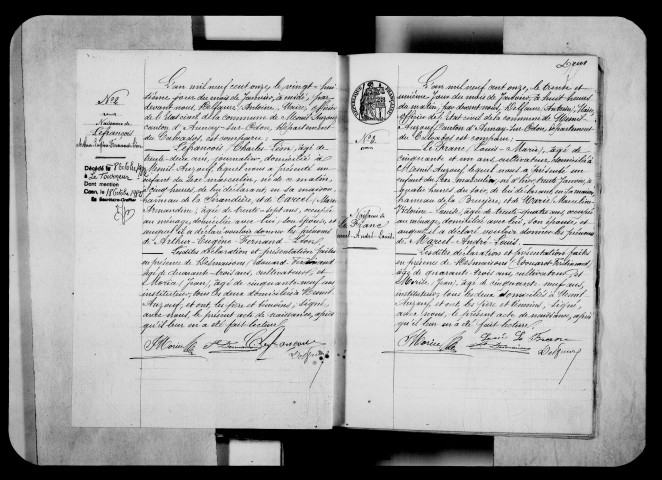 N° 2
Naissance de
Lefrançois
Arthur Eugène Fernand Léon
Décédé le 8 octobre
à Le Tourneur
Dont mention
Caen, le 18 octobre
Le Secrétaire-Greffier
L'an mil neuf cent onze, le vingt-huitième
jour du mois de Janvier, à midi, par
devant nous, Delfaux, Antoine, Maire, officier
de l'Etat civil de la commune de Mesnil-Auzouf
canton d'Aunay-sur-Odon, Département
du Calvados, est comparu:
Lefrançois Charles Léon, âgé de
trente-deux ans, journalier, domicilié à
Mesnil-Auzouf, lequel nous a présenté un
enfant du sexe masculin, né ce matin,
cinq heures, de lui déclarant, en sa maison,
hameau de la et de Carcel Marie
Armandine, âgée de trente-sept ans, occupée
au ménage, domiciliée avec lui, son épouse, et
auquel il a déclaré vouloir donner les prénoms
de Arthur-Eugène-Fernand-Léon.
Lesdites déclaration et présentation faites
en présence de Edouard Ferdinand
âgé de quarante-trois ans, cultivateur, et
Morice Jean, âgé de cinquante-neuf ans,
instituteur, tous les deux domiciliés à Mesnil
Auzouf, et ont, les père et témoins, signé
avec nous, le présent acte de naissance, après
qu'il leur en a été fait lecture.
JMorice Lefrançois
Delfaux
Deux
N° 3
Naissance de
Le Franc
Marcel-André-Louis
L'an mil neuf cent onze, le trente et
unième jour du mois de Janvier, à huit heures
du matin, par devant nous, Delfaux, Antoine, Maire
officier de l'Etat civil de la commune de Mesnil-
Auzouf, Canton d'Aunay-sur-Odon, département
du Calvados est comparu:
Le Franc (Louis-Marie), âgé de
cinquante et un ans, cultivateur, domicilié à
Mesnil Auzouf, lequel nous a présenté un
enfant du sexe masculin, né hier, trente Janvier, à
quatre heures du soir, de lui déclarant, en sa maison,
hameau de la Bruyère, et de Marie
Victoire-Louise, âgée de trente-quatre ans, occupée
au ménage, domiciliée avec lui, son épouse, et
auquel il a déclaré vouloir donner les prénoms
de Marcel-André-Louis.
Lesdites déclaration et présentation faites
en présence de Edouard-Ferdinand,
âgé de quarante-trois ans, cultivateur, et
Morice, Jean, âgé de cinquante-neuf ans,
instituteur, tous les deux domiciliés à Mesnil-
Auzouf, et ont les père et témoins, signé
avec nous, le présent acte de naissance, après
qu'il leur en a été fait lecture.
JMorice Le Franc
Delfaux